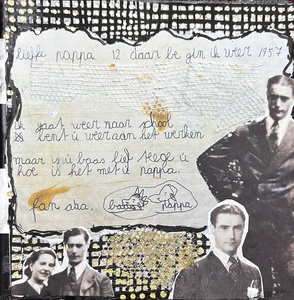 lieffe pappa 12 daar be gin ik weer 1957
ik gaat weer naar school
bent ú weer aan het werken
maar is ú baas lief tege ú
hoe is het met ú pappa.
fan aba.
baas
pappa